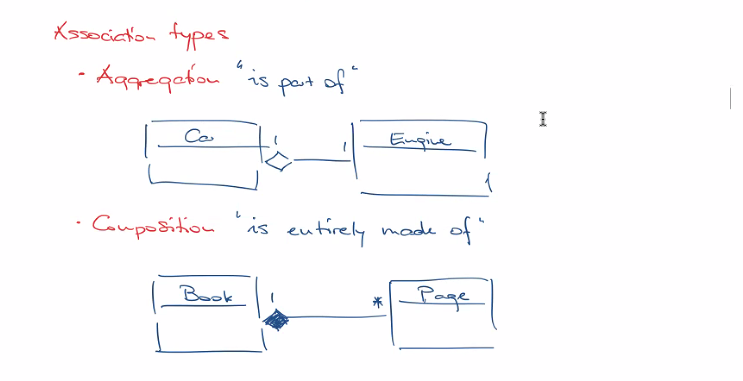 Association types
• Aggregation "is part of"
Ca Engine
1 1
1
• Composition "is entirely made of"
Book Page
1 *